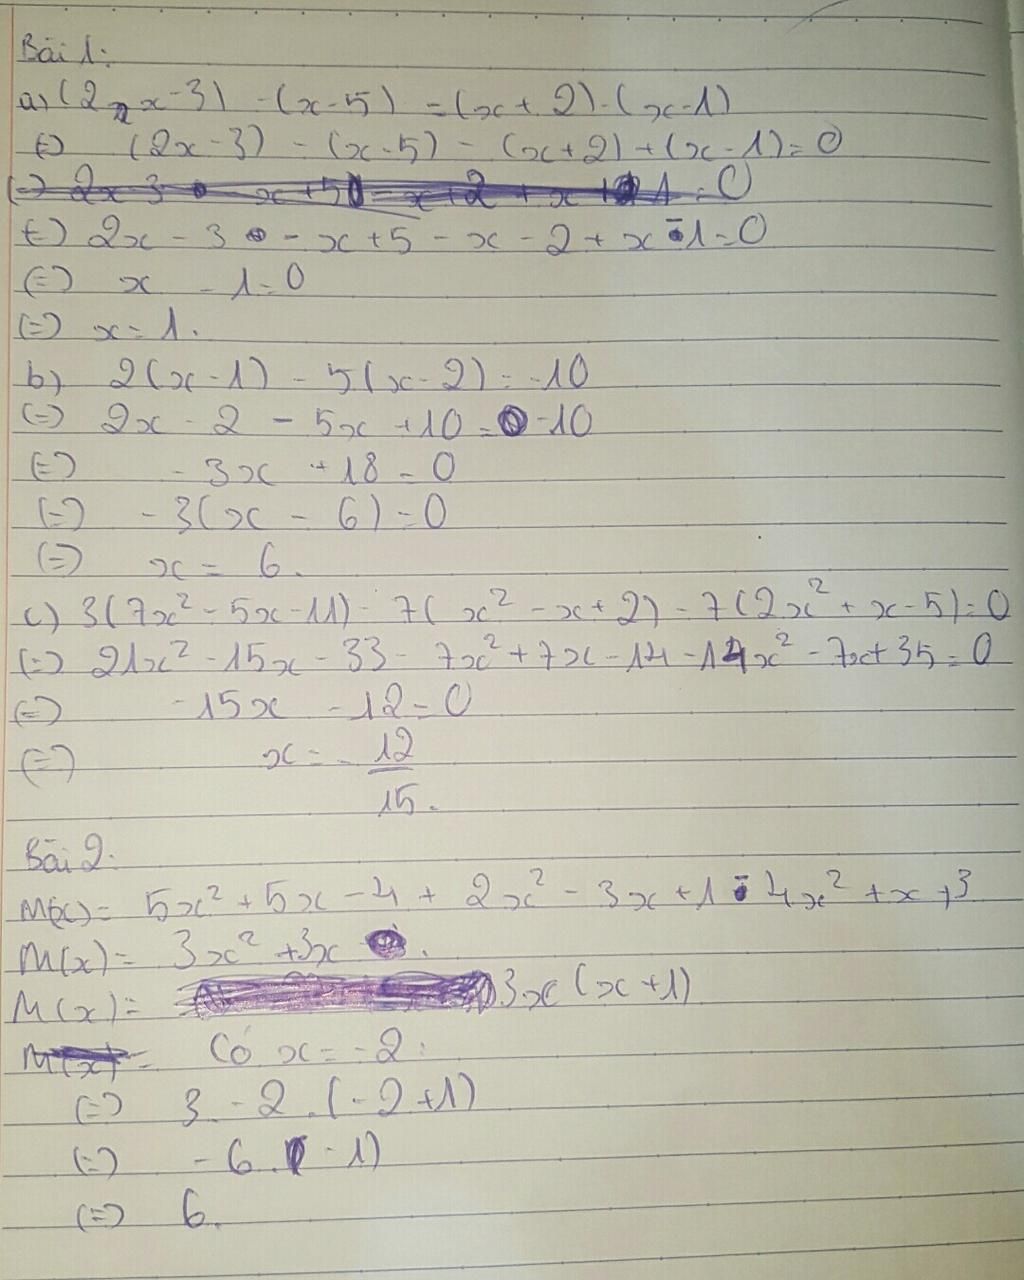 Bài 1:
a) (2x-3) - (x-5) = (x+2) - (x-1)
(=) (2x-3) - (x-5) - (x+2) + (x-1) = 0
(=) 2x 3 - x+5 - x+2 + x + 1 = 0
(=) 2x - 3 - x + 5 - x - 2 + x - 1 = 0
(=) x - 1 = 0
(=) x = 1.
b) 2(x-1) - 5(x-2) = -10
(=) 2x - 2 - 5x + 10 = -10
(=) -3x + 18 = 0
(=) -3(x - 6) = 0
(=) x = 6.
c) 3(7x² - 5x - 11) - 7(x² - x + 2) - 7(2x² + x - 5) = 0
(=) 21x² - 15x - 33 - 7x² + 7x - 14 - 14x² - 7x + 35 = 0
(=) -15x - 12 = 0
(=) x = - 12/15.
Bài 2:
M(x) = 5x² + 5x - 4 + 2x² - 3x + 1 - 4x² + x + 3
M(x) = 3x² + 3x.
M(x) = 3x(x+1)
M(x) = Có x = -2:
(=) 3 - 2 . (-2+1)
(=) -6 . (-1)
(=) 6.